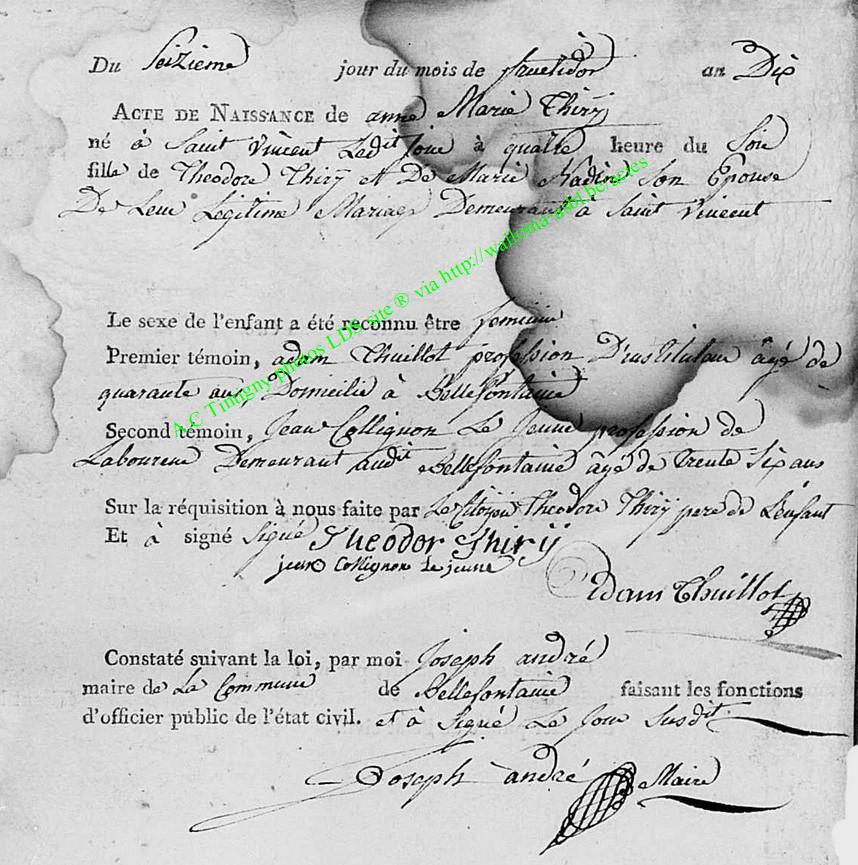 Du Seizieme jour du mois de fructidor an Dix
ACTE DE NAISSANCE de anne Marie Thirÿ
né à Saint Vincent Ledit Jour à quatre heure du Soir
fille de Theodore Thirÿ et De Marie Son Epouse
De Leur Legitime Mariage Demeurant à Saint Vincent
Le sexe de l'enfant a été reconnu être feminin
Premier témoin, adam Thuillot profession D'institutau âgé de
quarante ans, Domicilié à Bellefontaine
Second témoin, Jean Collignon Le Jeune profession de
Laboureur Demeurant audit Bellefontaine âgé de trente Six ans
Sur la réquisition à nous faite par Le Citoyen Theodore Thirÿ pere de L'enfant
Et à signé Signé Theodor Thirÿ
jean Collignon Le jeune
adam Thuillot
Constaté suivant la loi, par moi Joseph andré
maire de La Commune de Bellefontaine faisant les fonctions
d'officier public de l'état civil. et à Signé Le Jour Susdit
Joseph andré Maire
A.C Tintigny photos LDS site ® via http://wallonia-asbl.be/actes